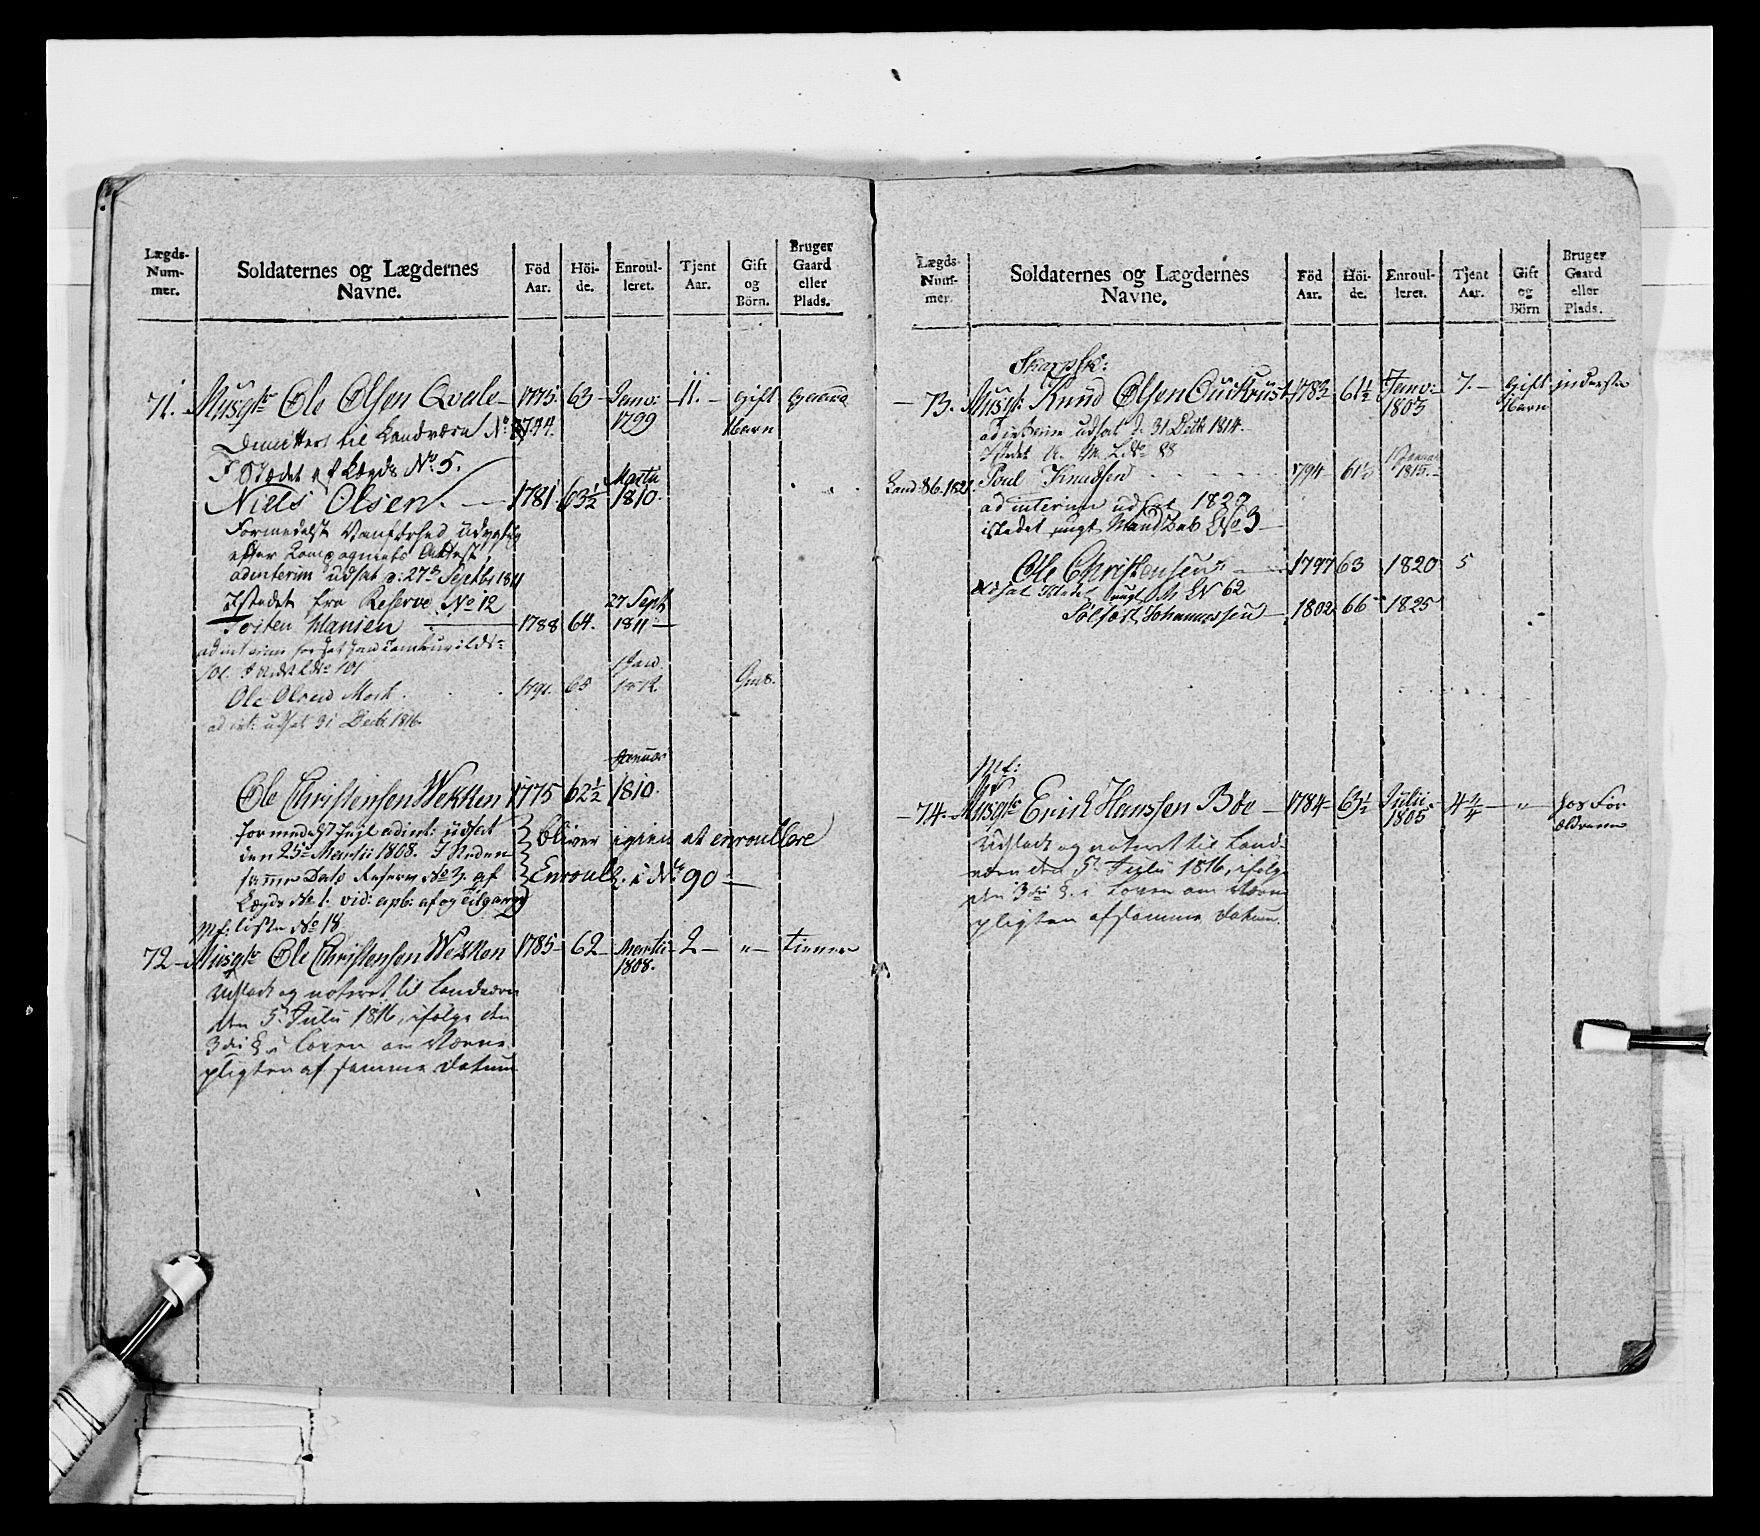 Lægds-
Num-
mer.
Soldaternes og Lægdernes
Navne.
Föd
Aar.
Höi-
de.
Enroul-
leret.
Tjent
Aar.
Gift
og
Börn.
Bruger
Gaard
eller
Plads.
71. Musqtr Ole Olsen Qvale 1775 63 Janv: 1799 11. Gift Barn Gaard
Dimitteret til Landværn No
I Stædet af Lægds No 5.
Niels Olsen. 1781 63½ Martii 1810.
Formedelst Vanförhed udygtig
efter Compagniets Attest,
ad interim udsat d: 27de Septbr 1811
Istedet fra Reserve No 12
Hansen 1788 64. 27 Sept 1811
ad interim
101
Ole Olsen 1791. 65 1 Jan. 1812.
ad int: udsat 31 Decbr 1816.
Ole Christensen Wekken 1775 62½ Januar 1810.
formedelst Fejl ad int: udsat
den 25de Martii 1808. I Steden
samme Dato Reserv No 3. af
Lægds No 1. vid: apb: af og tilgangs
liste No 18
bliver igien at enroullere
Enroull. i No 90
Mf:
72 Musqtr Ole Christensen Wekken 1785 62 Martii 1808. 2 " tiener
Udslædt og noteret til Landværn
den 5te Julii 1816, ifølge den
3die § i Loven om Værne-
pligten af samme Datum
Lægds-
Num-
mer.
Soldaternes og Lægdernes
Navne.
Föd
Aar.
Höi-
de.
Enroul-
leret.
Tjent
Aar.
Gift
og
Börn
Bruger
Gaard
eller
Plads.
73. Musqt. Knud Olsen 1783 61½ Janv: 1803 7. Gift Barn inderste
ad interim udsat d. 31 Decbr 1814.
Istedet 88
Poul Knudsen 1794 61½ 1 Januar 1815.
ad interim udsat 1820
istedet ungt Mandskab No 3
Ole Christensen 1797 63 1820 5
udsat istedet ungt M LN 62
Johannessen 1802 66 1825
Mf:
74. Musqtr Erich Hanssen Böe 1784 63½ Julii 1805 4¾ " hos For
ældrene
Udslædt og noteret til Land-
værn den 5te Julii 1816, ifølge
den 3die §. i Loven om Værne
pligten af samme Datum.